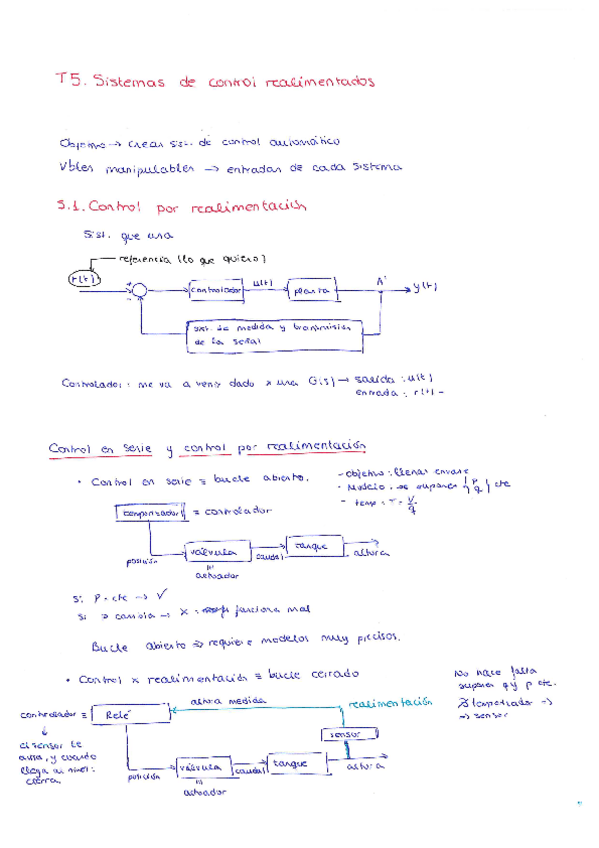 T5. Sistemas de control realimentados
Objetivo → crear sist. de control automático
Vbles manipulables → entradas de cada sistema
5.1. Control por realimentación
Sist. que una
referencia (lo que quiero)
r(t)
+
-
controlador
u(t)
planta
y(t)
sist. de medida y transmisión
de la señal
Controlador: me va a venir dado x una G(s) → salida : u(t)
entrada : r(t) -
Control en serie y control por realimentación
• Control en serie ≡ bucle abierto.
- Objetivo : llenar envase
- Modelo : se suponen { p q } cte
- temp = T = V/q
temporizador ≡ controlador
posición
válvula
caudal
tanque
altura
actuador
si P = cte → √
si cambia → x funciona mal
Bucle abierto ⇒ requiere modelos muy precisos.
• Control x realimentación ≡ bucle cerrado
No hace falta
suponer q y p cte.
∄ temporizador ⇒
⇒ sensor
altura medida
realimentación
controlador ≡ Relé
sensor
el sensor le
avisa, y cuando
llega al nivel:
cierra
posición
válvula
caudal
tanque
altura
actuador